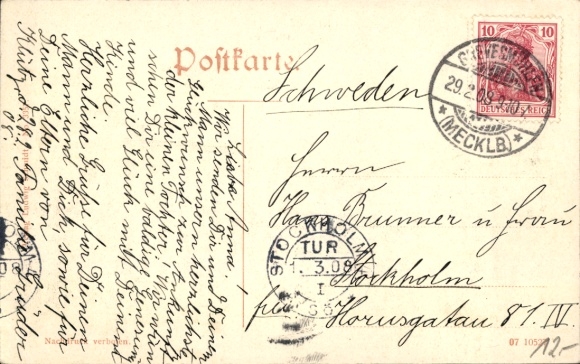 Postkarte
10 10
DEUTSCHES REICH
GREVESMÜHLEN
29.2.08
* (MECKLB.) *
Liebe Anna!
Wir senden Dir und Deinem
Mann unsern herzlichsten
Glückwunsch zur Ankunft
der kleinen Tochter. Wir wünschen
Dir eine baldige Genesung
und viel Glück mit Deinem
Kinde.
Herzliche Grüße für Deinen
Mann und Dich, sowie für
Deine Eltern von
Familie
Klütz, d. 29.2.
08.
Schweden
Herrn
Brunner u Frau
Stockholm
Hornsgatan 81 IV.
STOCKHOLM
TUR
1. 3.08
I
Nachdruck verboten.
07 1052
12-